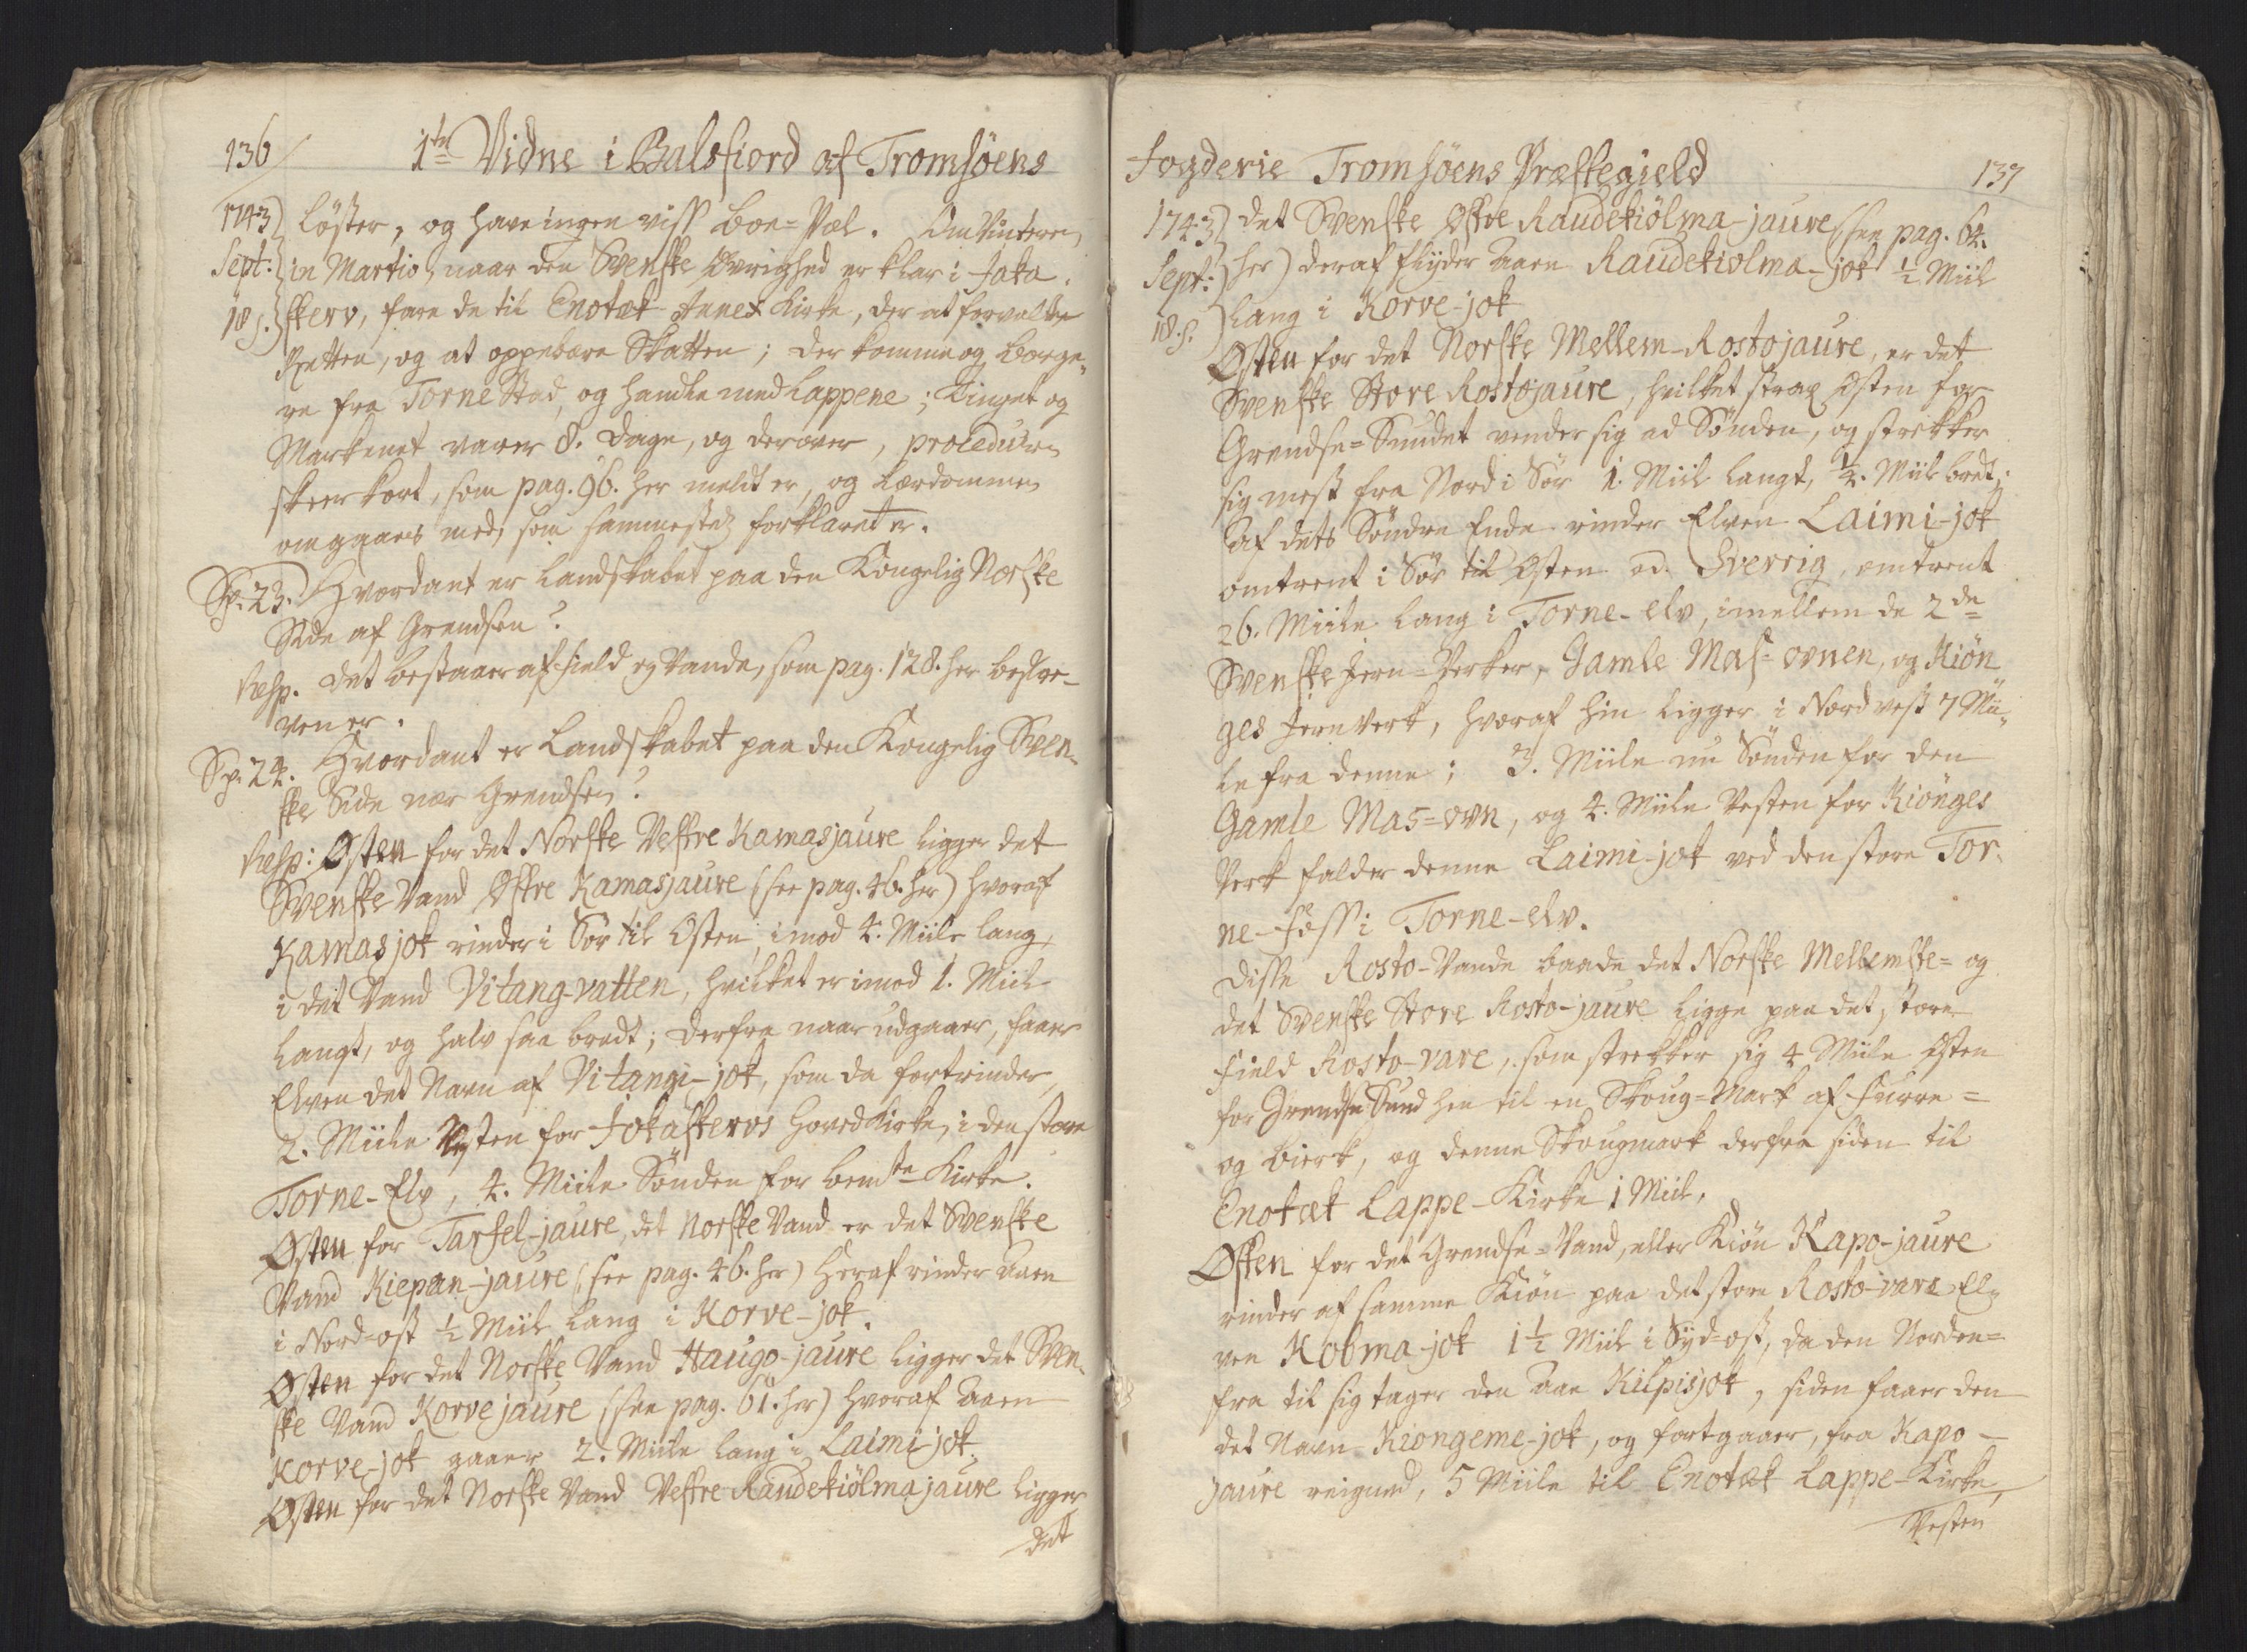 136
1te Vidne i Balsfiord af Tromsøens
1743
Sept:
18 s.
løster, og have ingen viss boe-Pæl. Om Vinteren
in Martio, naar den Svenske Øvrighed er klar i Joka-
skerv, fare de til Enotæk Annex Kirke, der at forvalte
Retten, og at oppebære Skatten; der komme og Borge-
re fra Torne Stad, og handle med Lappene; Tinget og
Markenet varer 8. Dage, og derover, proceduren
skeer kort, som pag. 96. her meldt er, og Lærdommen
omgaaes med, som sammesteds forklaret er.
Sp. 23. Hvordant er Landskabet paa den Kongelig Norske
Side af Grendsen?
Resp. Det bestaaer af Field og Vande, som pag. 128. her beskre-
ven er.
Sp. 24. Hvordant er Landskabet paa den Kongelig Sven-
ske Side nær Grendsen?
Resp: Østen for det Norske Vestre Kamasjaure ligger det
Svenske Vand Østre Kamasjaure (see pag. 46. her) hvoraf
Kamasjok rinder i Sør til Østen, imod 4. Miile lang,
i det Vand Vitang-vatten, hvilket er imod 1. Miil
langt, og halv saa bredt; derfra naar udgaaer, faaer
Elven det Navn af Vitangi-jok, som da fortrinder,
2. Miile Vesten for Jokaskervs Hoved Kirke, i den store
Torne-Elv, 4. Miile Sønden for bemte Kirke.
Østen for Tarfel-jaure, det Norske Vand er det Svenske
Vand Kiepan-jaure (see pag. 46. her) Heraf rinder Aaen
i Nord-ost ½ Miil lang i Korve-jok.
Østen for det Norske Vand Haugo-jaure ligger det Sven-
ske Vand Korvejaure (see pag. 61. her) hvoraf Aaen
Korve-jok gaaer 2. Miile lang i Laimi-jok.
Østen for det Norske Vand Vestre Raudekiølmajaure ligger
det
Fogderie Tromsøens Præstegield
137
1743
Sept:
18. s.
det Svenske Østre Raudekiølma-jaure (see pag. 64.
her) deraf flyder Aaen Raudekiolma-jok ½ Miil
lang i Korve-jok
Østen for det Norske Mellem-Rostojaure, er det
Svenske Store Rostojaure, hvilket strax Østen for
Grendse-Sundet vender sig ad Sønden, og strekker
sig mest fra Nord i Sør 1. Miil langt, ¼. Miil bredt;
Af dets Søndre Ende rinder Elven Laimi-jok
omtrent i Sør til Østen ad Sverrig, omtrent
26. Miile lang i Torne-elv, imellem de 2de
Svenske Jern-Verker, Gamle Mas-ovnen, og Kiøn
ges Jernverk, hvoraf hin ligger i Nordvest 7 Mii-
le fra denne; 3. Miile nu Sønden for den
Gamle Mas-ovn, og 4. Miile Vesten for Kiønges
Verk falder denne Laimi-jok ved den store Tor-
ne-Foss i Torne-elv.
Disse Rosto-Vande baade det Norske Mellemste- og
det Svenske Store Rosto-jaure ligge paa det store
Field Rosto-vare, som strekker sig 4 Miile Østen
for Grendse Sund hen til en Skoug-Mark af Furre-
og Bierk, og denne Skougmark derfra siden til
Enotæk Lappe-Kirke 1 Miil.
Østen for det Grendse-Vand, eller Kiøn Kapo-jaure
rinder af samme Kiøn paa det store Rosto-vara El-
ven Kobma-jok 1½ Miil i Syd-ost, da den Norden-
fra til sig tager den Aae Kilpisjok, siden faaer den
det Navn Kiongeme-jok, og fortgaaer, fra Kapo-
jaure reigned, 5 Miile til Enotæk Lappe-Kirke,
Vesten